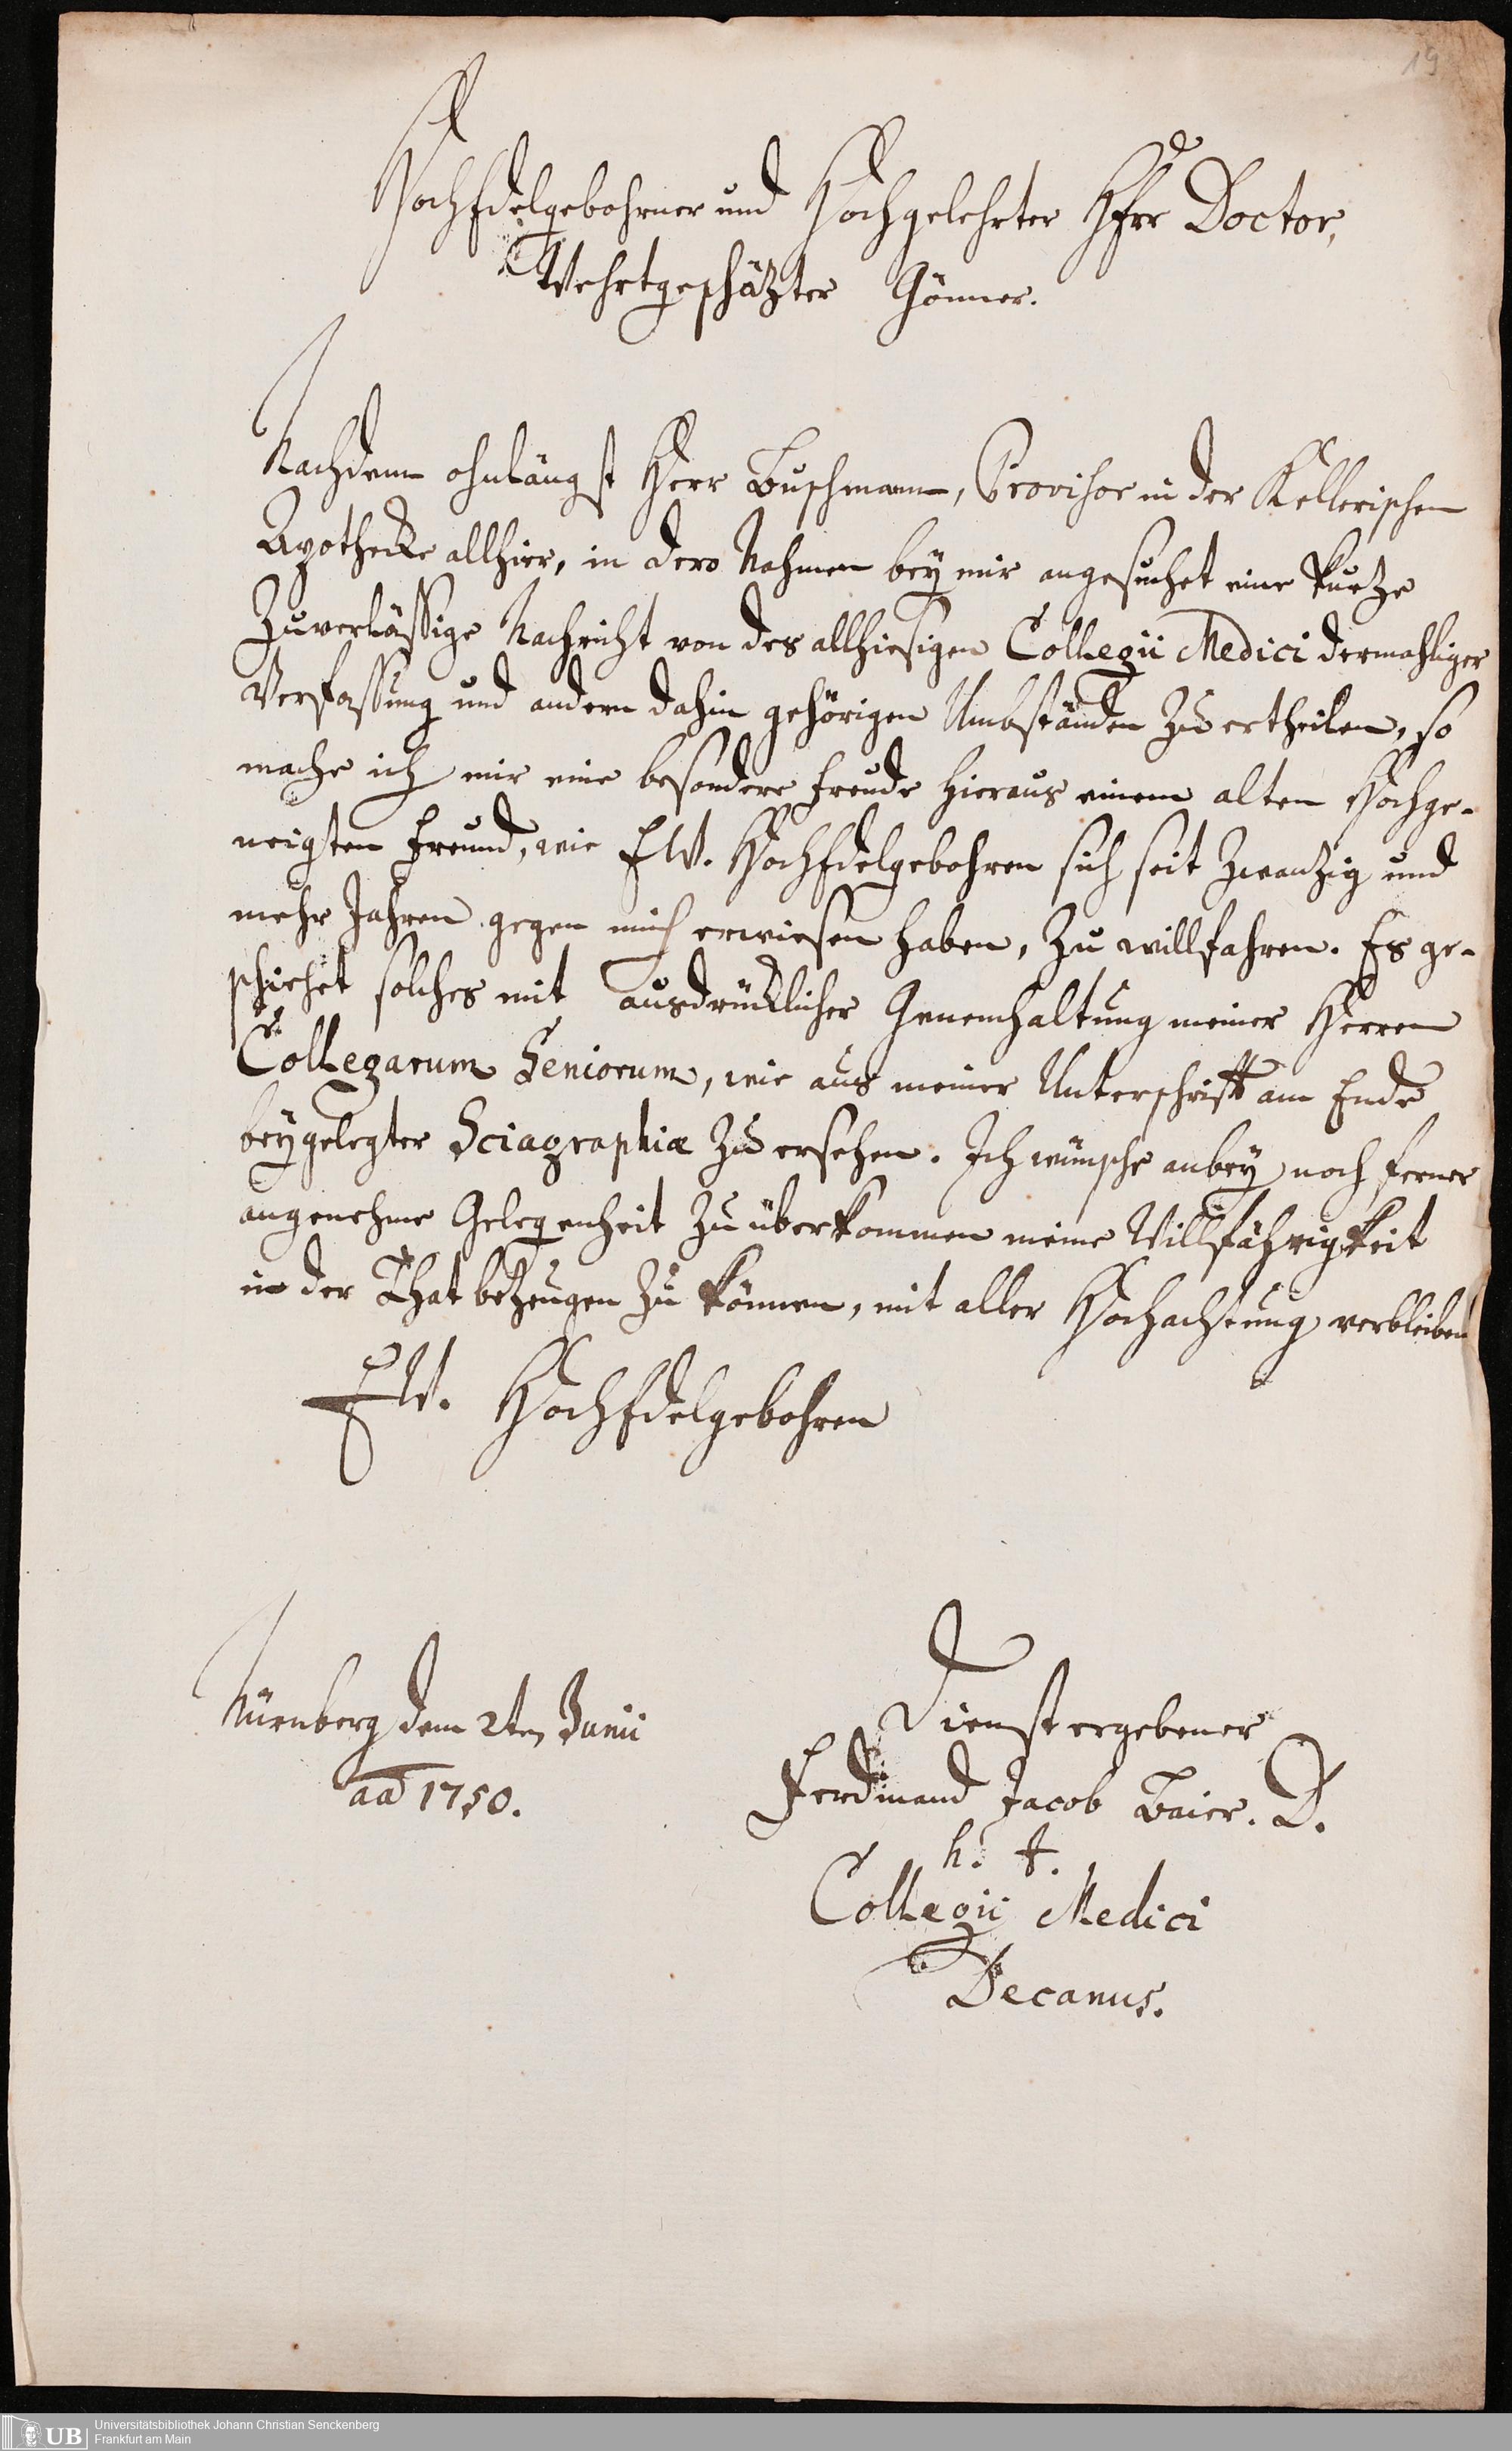 19
HochEdelgebohrner und Hochgelehrter HErr Doctor,
Wehrtgeschätzter Gönner.
Nachdem ohnlängst Herr Buschmann, Provisor in der Kellerischen
Apothecke allhier, in dero Nahmen bey mir angesuchet eine kurtze
Zuverläßige Nachricht von des allhiesigen Collegii Medici dermahliger
Verfaßung und andern dahin gehörigen Umbständen zu ertheilen, so
mache ich mir eine besondere Freude hieraus einem alten Hochge-
neigten Freund, wie EW. HochEdelgebohren sich seit zwantzig und
mehr Jahren gegen mich erwiesen haben, zu willfahren. Es ge-
schiehet solches mit ausdrücklicher Genemhaltung meiner Herren
Collegarum Seniorum, wie aus meiner Unterschrifft am Ende
beygelegter Sciagraphiæ zu ersehen. Ich wünsche anbey noch ferner
angenehme Gelegenheit zu überkommen meine Willfährigkeit
in der That bezeugen zu können, mit aller Hochachtung verbleibend
EW. HochEdelgebohren
Nürnberg dem 2ten Junii
aõ 1750.
Dienstergebener
Ferdinand Jacob Baier. D.
h. t.
Collegii Medici
Decanus.
UB
Universitätsbibliothek Johann Christian Senckenberg
Frankfurt am Main